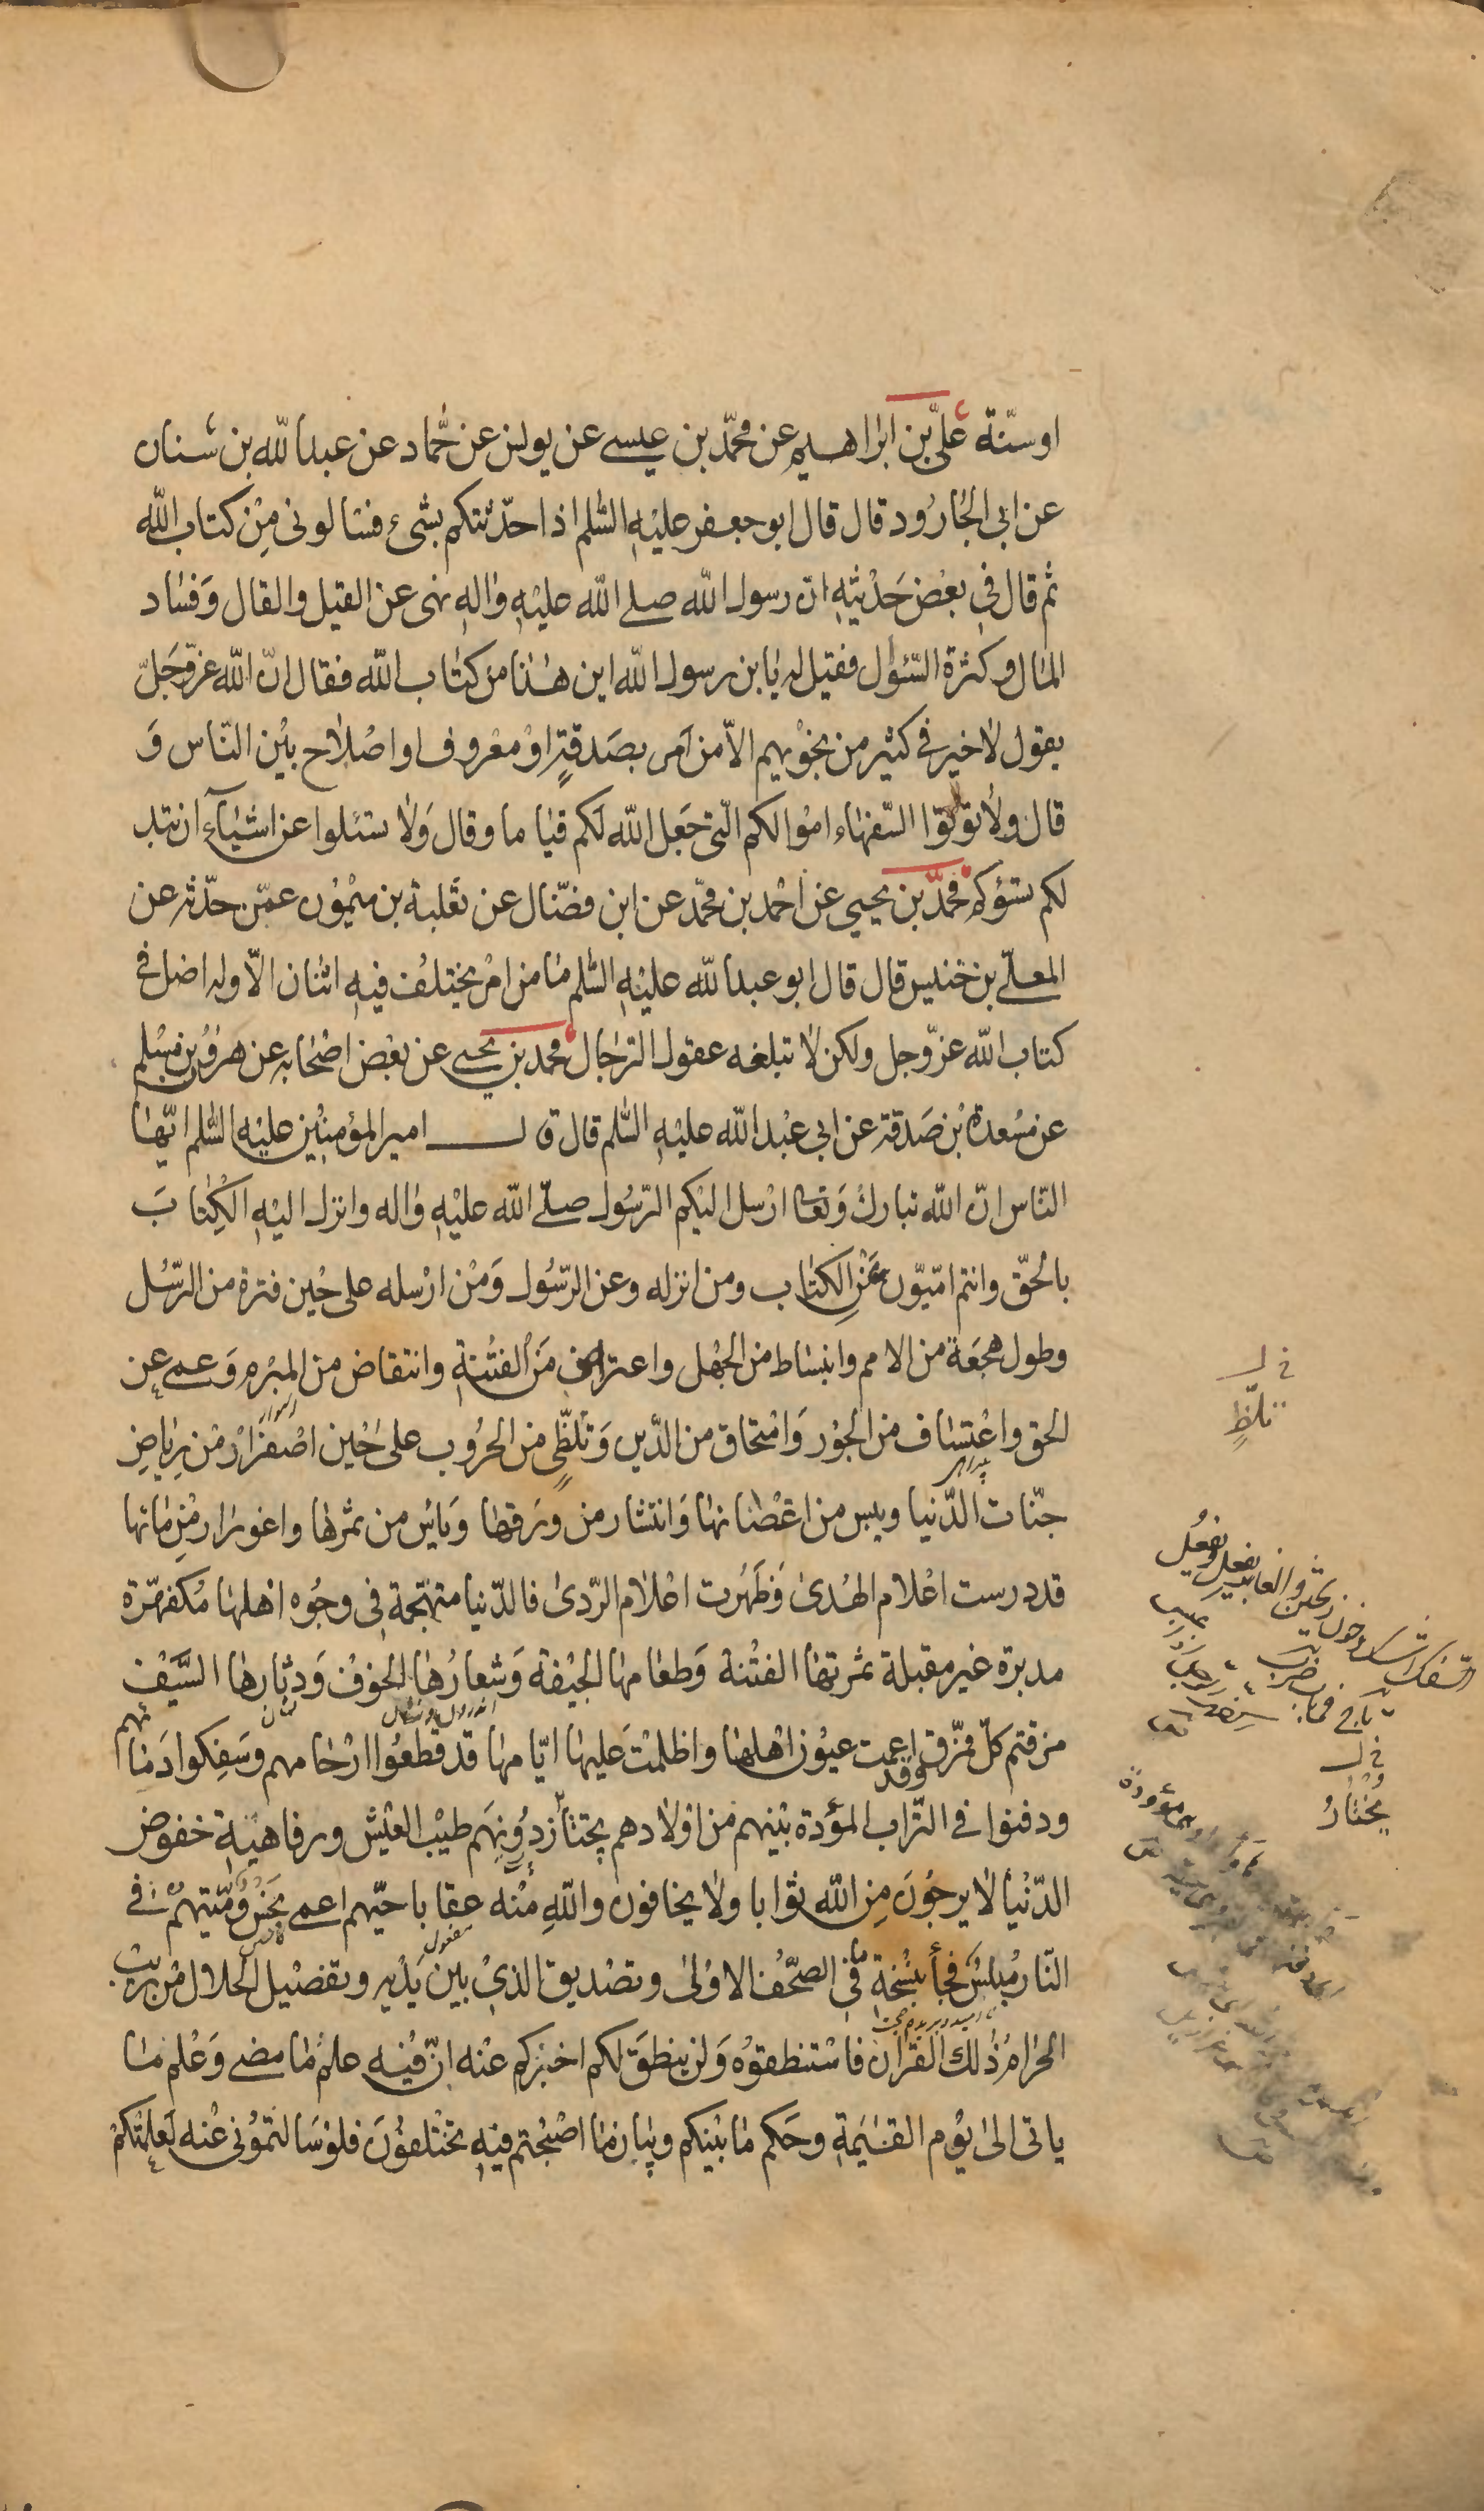 اوسنّة علىّ بن ابراهيم عن محمّد بن عيسى عن يونس عن حمّاد عن عبد اللّه بن سنان
عن ابى الجارود قال قال ابو جعفر عليه السّلم اذا حدّثتكم بشىء فسالونى من كتاب اللّه
ثم قال فى بعض حديثه انّ رسول اللّه صلى اللّه عليه واله نهى عن القيل والقال وفساد
المال وكثرة السّئوال فقيل له يا بن رسول اللّه اين هذا من كتاب اللّه فقال انّ اللّه عزّوجلّ
يقول لا خير فى كثير من نجويهم الاّ من امر بصدقةٍ او معروف او اصلاح بين النّاس و
قال ولا تؤتوا السّفهاء اموالكم الّتى جعل اللّه لكم قياما وقال ولا تسئلوا عن اشياء ان تبد
لكم تسؤكم محمّد بن يحيى عن احمد بن محمّد عن ابن فضّال عن ثعلبة بن ميمون عمّن حدّثه عن
المعلّى بن خنيس قال قال ابو عبد اللّه عليه السّلم ما من امر يختلف فيه اثنان الاّ وله اصل فى
كتاب اللّه عزّوجل ولكن لا تبلغه عقول الرّجال محمد بن يحيى عن بعض اصحابه عن هرون بن مسلم
عن مسعدة بن صدقة عن ابى عبد اللّه عليه السّلم قال قال امير المؤمنين عليه السّلم ايّها
النّاس انّ اللّه تبارك وتعا ارسل اليكم الرّسول صلّى اللّه عليه واله وانزل اليه الكتاب
بالحقّ وانتم امّيّون عن الكتاب ومن انزله وعن الرّسول ومن ارسله على حين فترة من الرّسل
وطول هجعة من الامم وانبساط من الجهل واعتراض من الفتنة وانتقاض من المبرم وعمى عن
الحق واعتساف من الجور وامتحاق من الدّين وتلظّى من الحروب على حين اصفرار من رياض
جنّات الدّنيا ويبس من اغصانها وانتشار من ورقها ويأس من ثمرها واغورار من مائها
قد درست اعلام الهدى وظهرت اعلام الرّدى فالدّنيا متهجّمة فى وجوه اهلها مكفهرّة
مدبرة غير مقبلة ثمرتها الفتنة وطعامها الجيفة وشعارها الخوف ودثارها السّيف
مزقتم كلّ ممزّق وقد اعمت عيون اهلها واظلمت عليها ايّامها قد قطعوا ارحامهم وسفكوا دماءهم
ودفنوا فى التّراب الموؤدة بينهم من اولادهم يجتاز دونهم طيب العيش ورفاهية خفوض
الدّنيا لا يرجون من اللّه ثوابا ولا يخافون واللّه منه عقابا حيّهم اعمى نجس وميّتهم فى
النّار مبلس فجاءهم بنسخة ما فى الصّحف الاولى وتصديق الذى بين يديه وتفصيل الحلال من ريب
الحرام ذلك القران فاستنطقوه ولن ينطق لكم اخبركم عنه انّ فيه علم ما مضى وعلم ما
ياتى الى يوم القيمة وحكم ما بينكم وبيان ما اصبحتم فيه تختلفون فلو سالتمونى عنه لعلمتكم
فى ل
تلظٍّ
فى ل
يختار